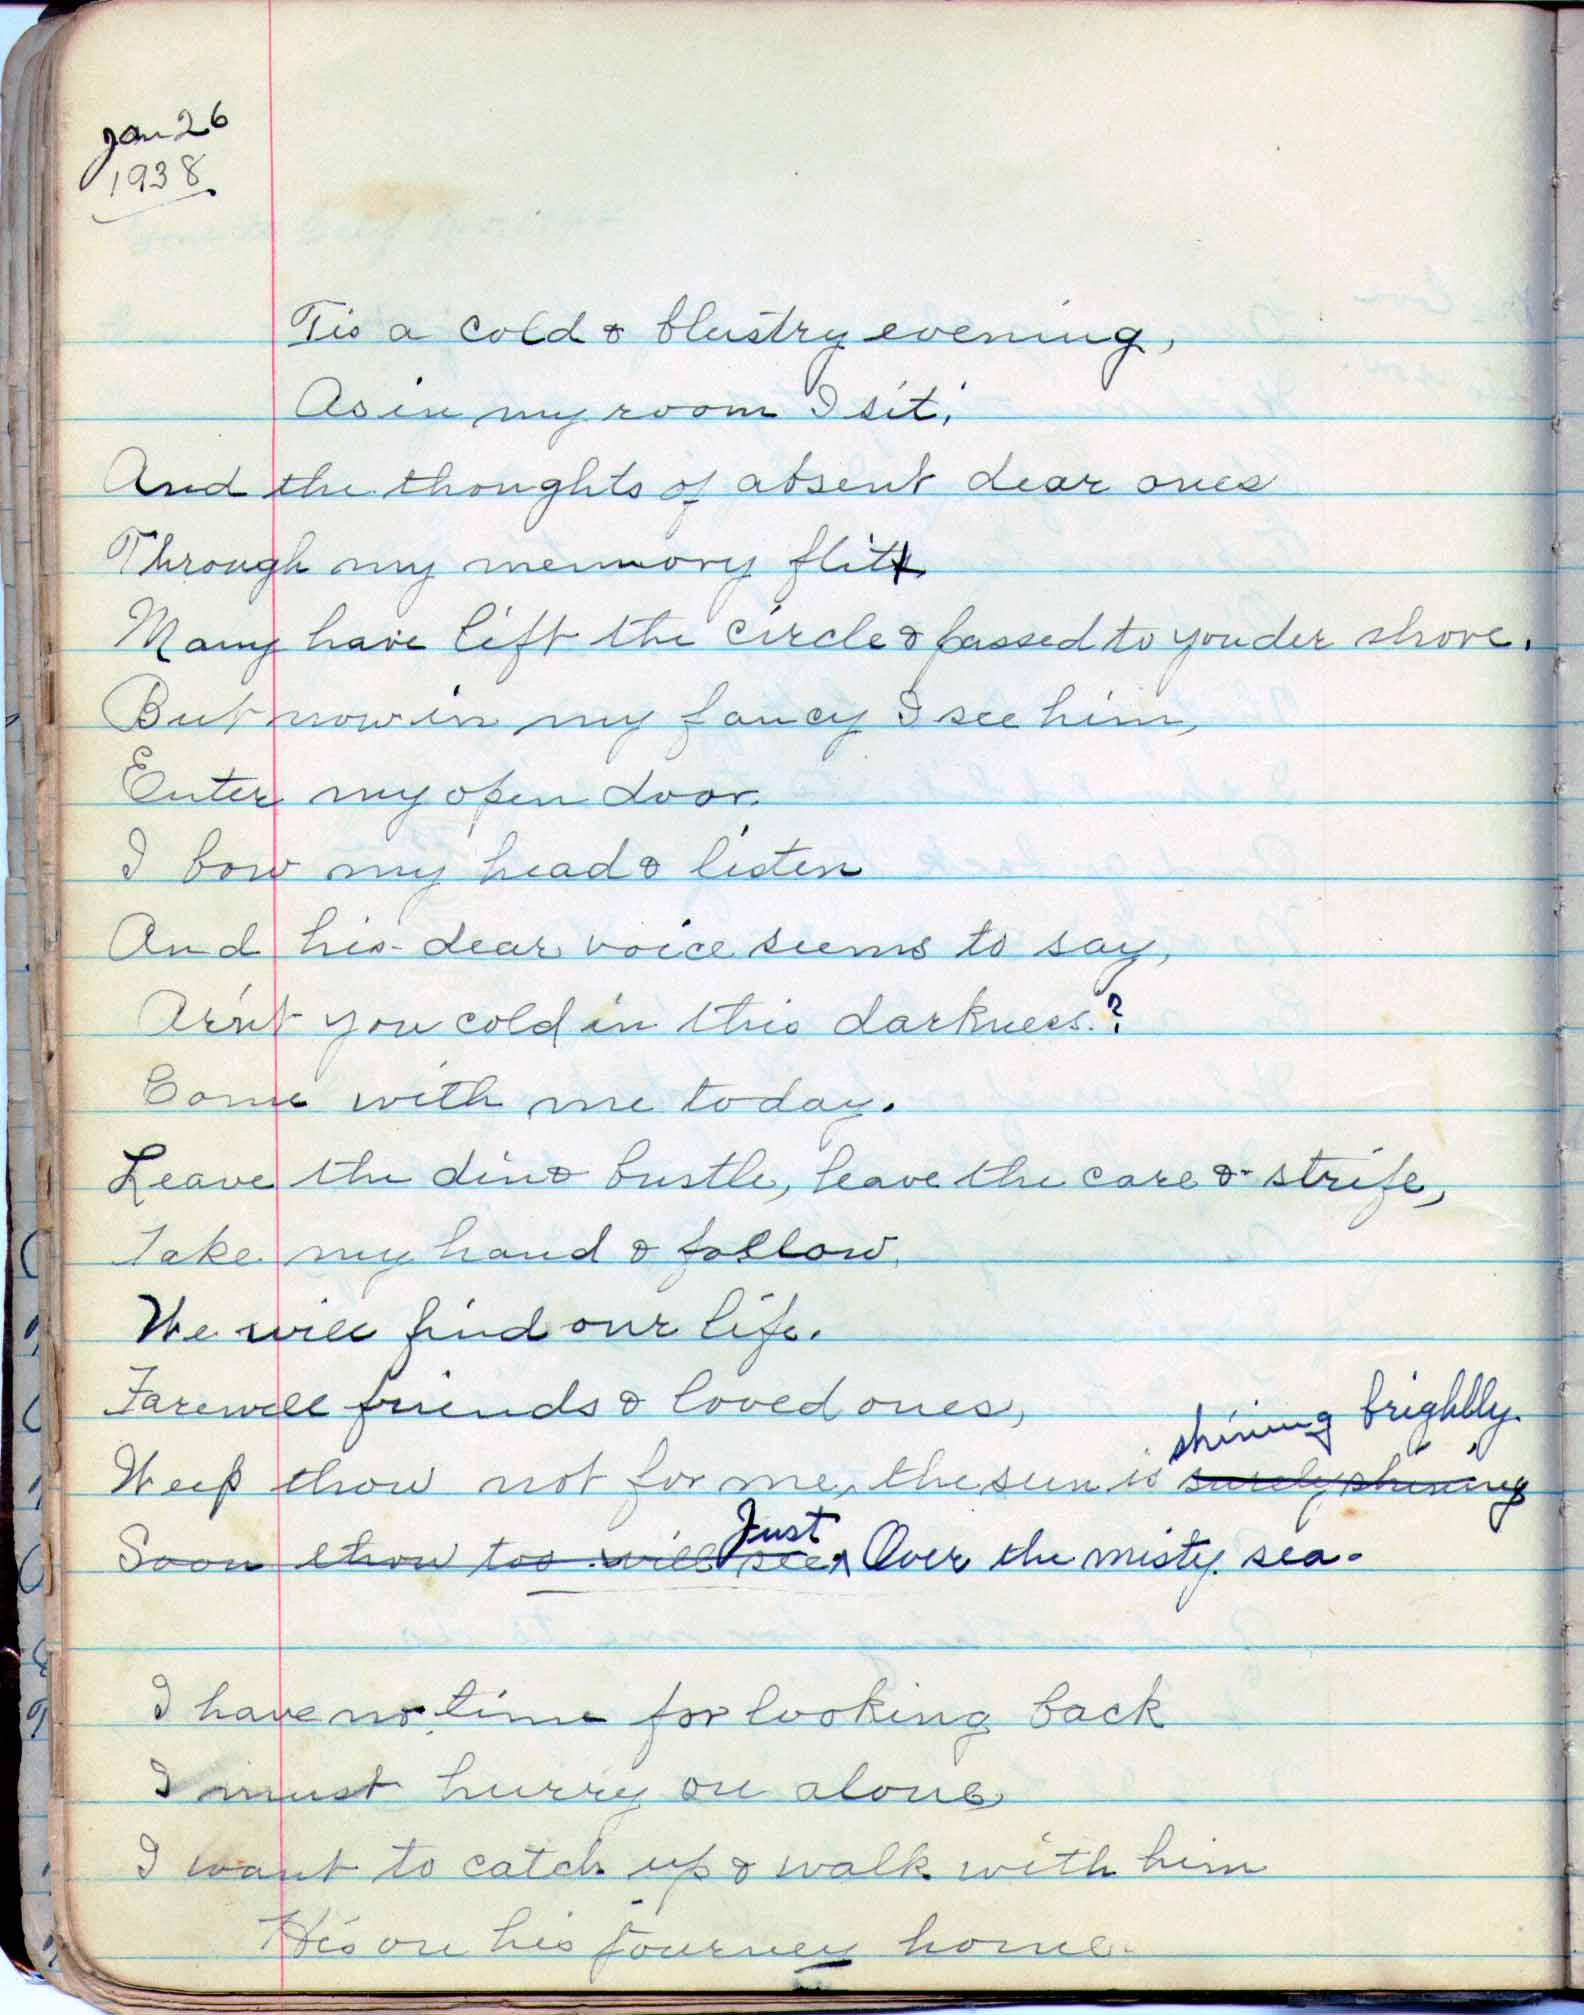 Jan 26
1938
Tis a cold & blustry evening,
As in my room I sit,
And the thoughts of absent dear ones
Through my memory flit
Many have left the circle & passed to yonder shore.
But now in my fancy I see him,
Enter my open door.
I bow my head & listen
And his dear voice seems to say,
Ar'nt you cold in this darkness?
Come with me today.
Leave the din & bustle, leave the care & strife,
Take my hand & follow,
We will find our life.
Farewell friends & loved ones,
shining brightly.
Weep thou not for me, the sun is surely shining
Just
Soon thou too will see, Over the misty sea.
I have no time for looking back
I must hurry on alone
I want to catch up & walk with him
He's on his journey home.